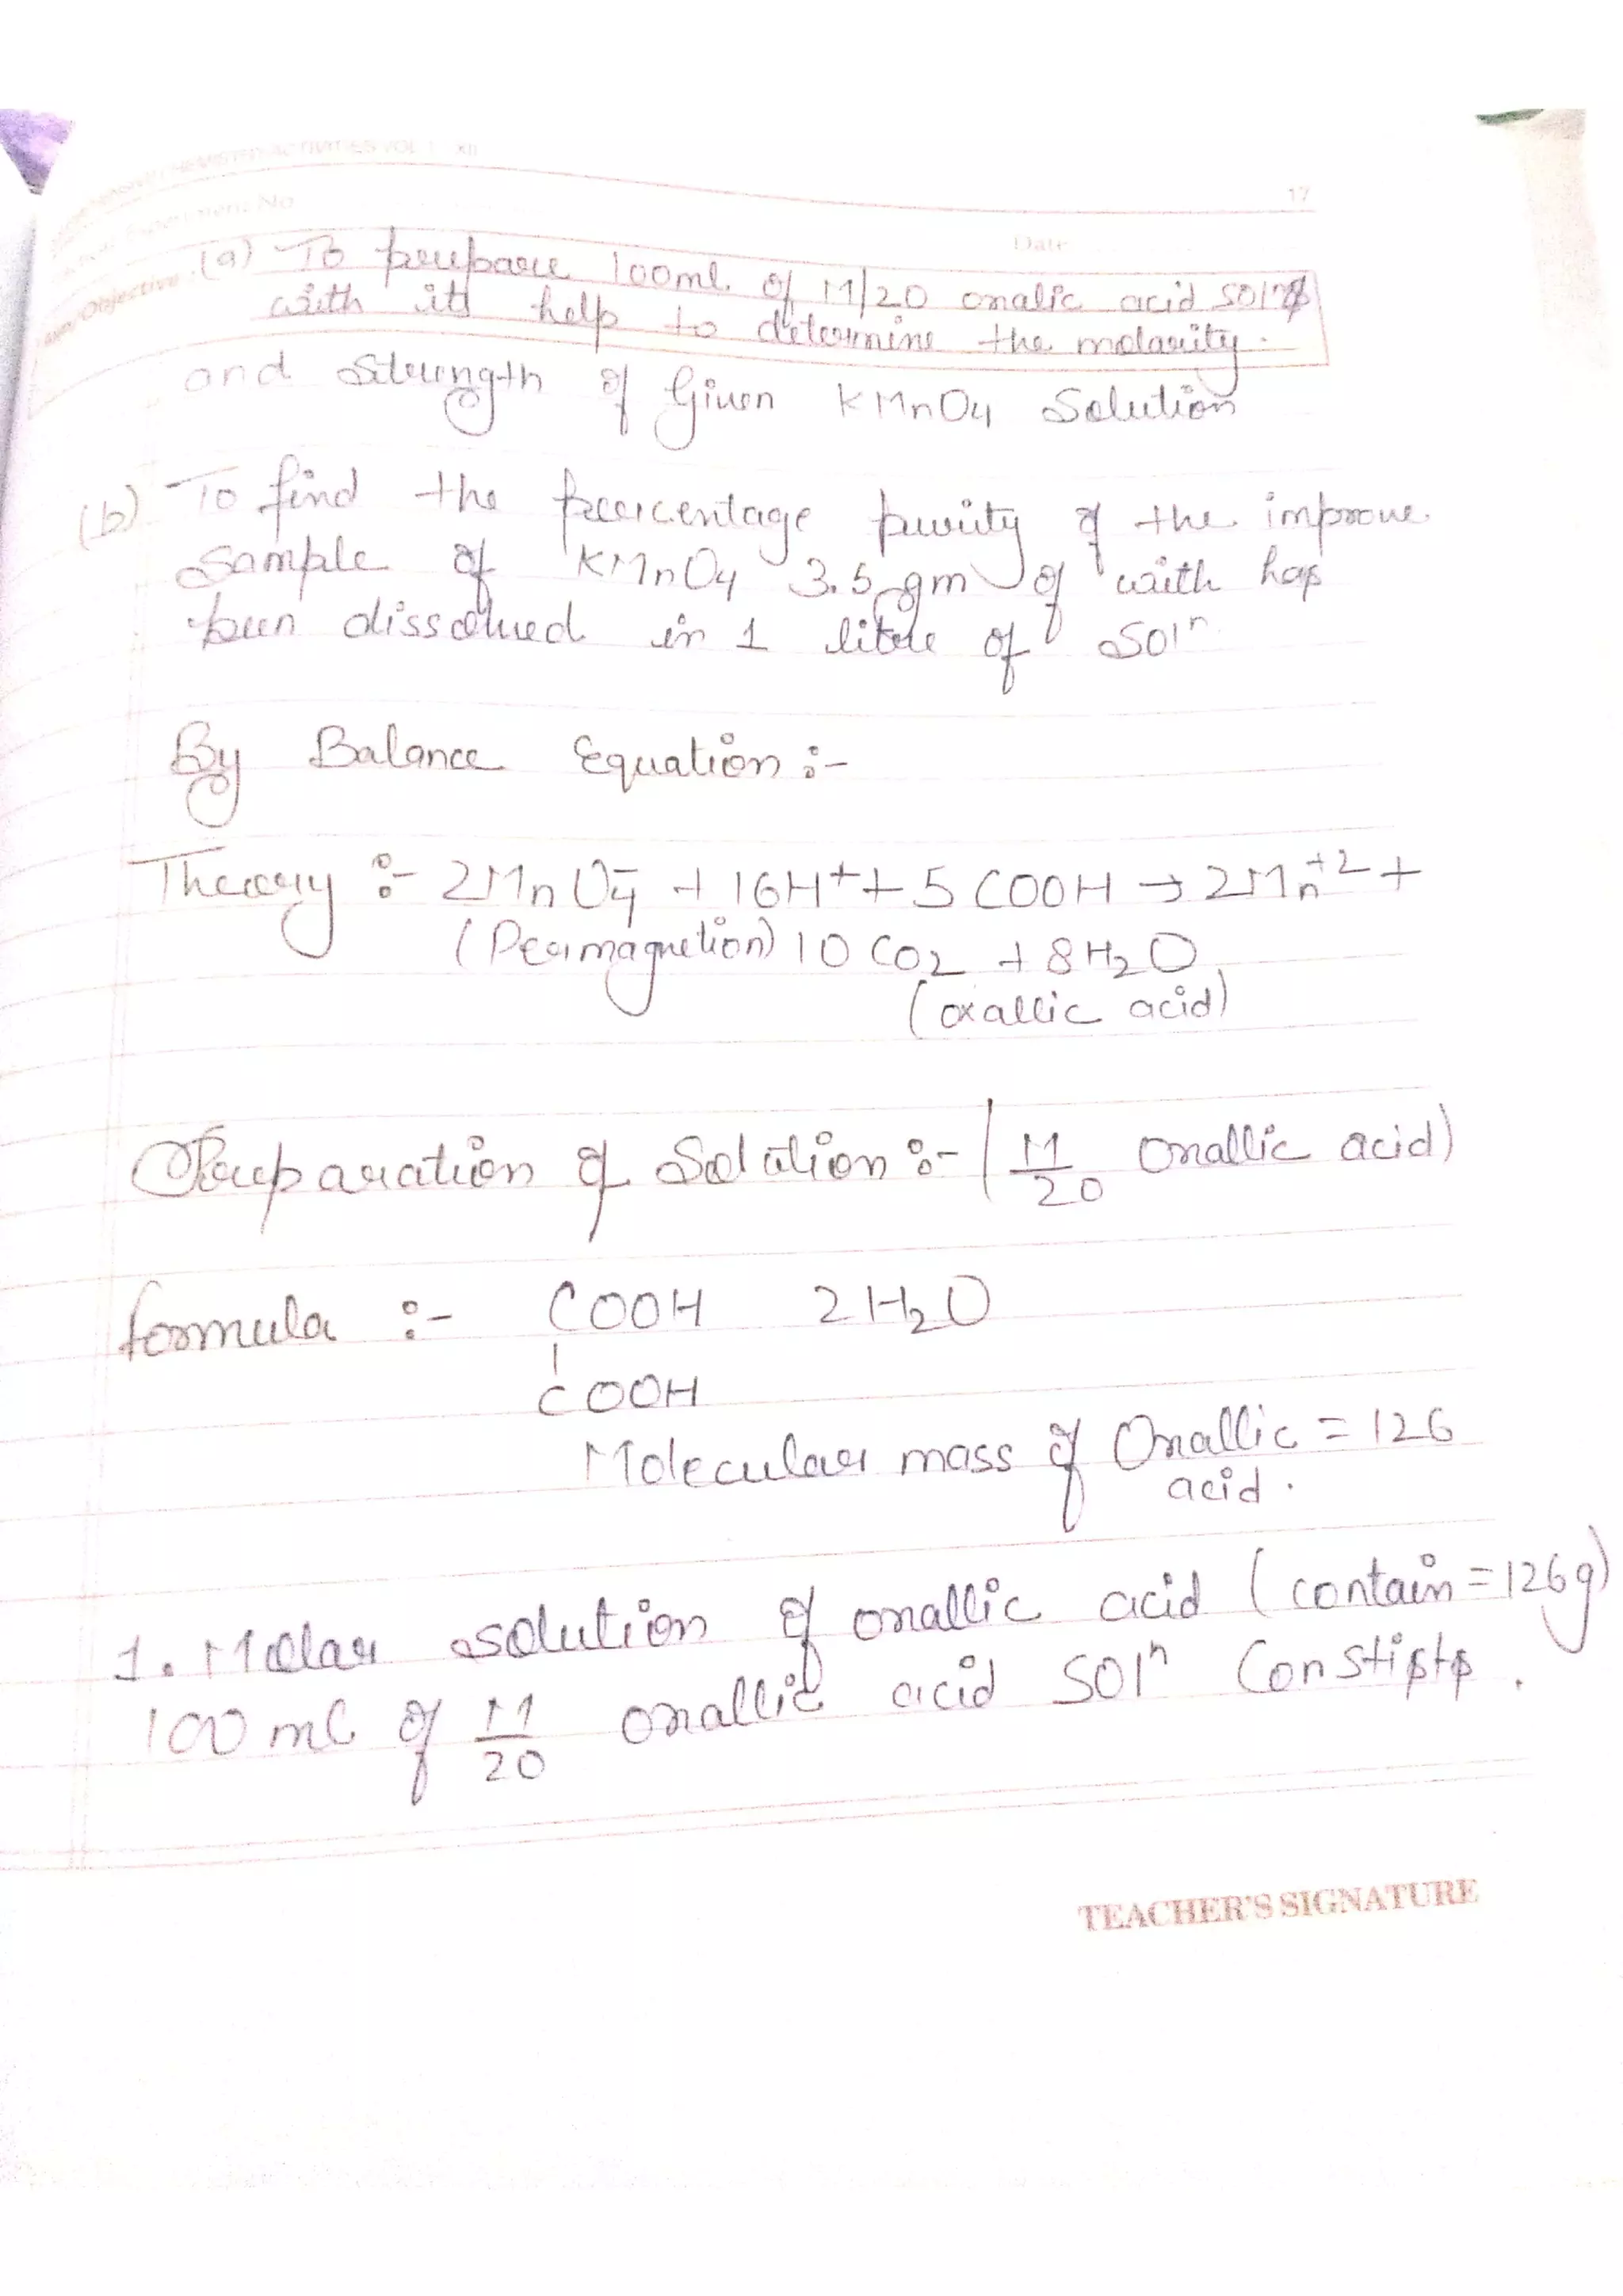 CHEMISTRY ACTIVITIES VOL XII
17
Experiment No
Date
Aim/Objective (a) To prepare 100ml. of M/20 oxalic acid solⁿ
with its help to determine the molarity.
and strength of Given KMnO4 Solution
(b) To find the percentage purity of the improve
sample of KMnO4 3.5 gm of with has
been dissolved in 1 litre of Solⁿ
By Balance Equation :-
Theory :- 2MnO4⁻ + 16H⁺ + 5 COOH → 2Mn⁺² +
(Permagnetion) 10 CO2 + 8H2O
(oxallic acid)
Preparation of Solution :- ( M/20 Oxallic acid)
formula :- COOH 2H2O
COOH
Molecular mass of Oxallic = 126
acid.
1. Molar solution of oxallic acid (contain = 126g)
100 ml of M/20 oxallic acid Solⁿ
TEACHER'S SIGNATURE